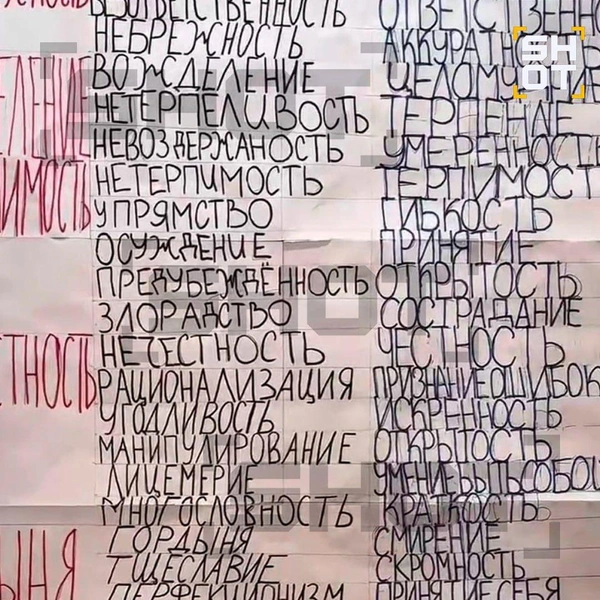 БЕЗОТВЕТСТВЕННОСТЬ ОТВЕТСТВЕННО
НЕБРЕЖНОСТЬ АККУРАТНОСТЬ
ВОЖДЕЛЕНИЕ ЦЕЛОМУ
ЕЛЕНИЕ НЕТЕРПЕЛИВОСТЬ ТЕРПЕНИЕ
НЕВОЗДЕРЖАНОСТЬ УМЕРЕННОСТЬ
ИМОСТЬ НЕТЕРПИМОСТЬ ТЕРПИМОСТ
УПРЯМСТВО ГИБКОСТЬ
ОСУЖДЕНИЕ ПРИНЯТИЕ
ПРЕДУБЕЖДЁННОСТЬ ОТКРЫТОСТЬ
ЗЛОРАДСТВО СОСТРАДАНИЕ
НЕЧЕСТНОСТЬ ЧЕСТНОСТЬ
ТНОСТЬ РАЦИОНАЛИЗАЦИЯ ПРИЗНАНИЕ ОШИБОК
УГОДЛИВОСТЬ ИСКРЕННОСТЬ
МАНИПУЛИРОВАНИЕ ОТКРЫТОСТЬ
ЛИЦЕМЕРИЕ УМЕНИЕ БЫТЬ СОБОЙ
МНОГОСЛОВНОСТЬ КРАТКОСТЬ
ГОРДЫНЯ СМИРЕНИЕ
ЫНЯ ТЩЕСЛАВИЕ СКРОМНОСТЬ
ПЕРФЕКЦИОНИЗМ ПРИНЯТИЕ СЕБЯ
SHOT